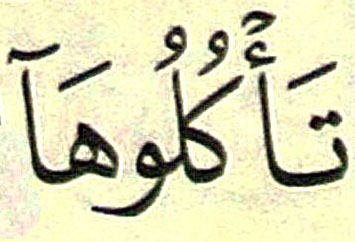 تَأۡكُلُوهَآ